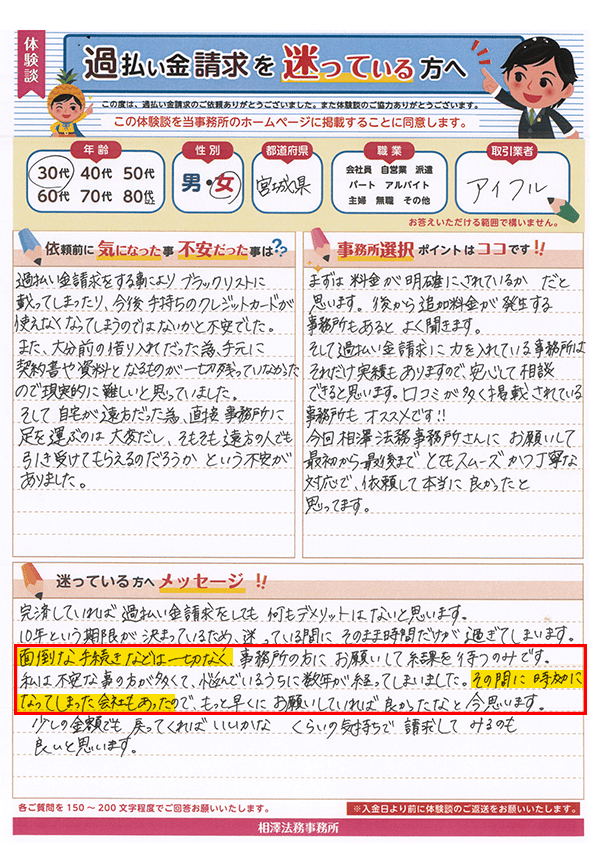 体験談
過払い金請求を迷っている方へ
この度は、過払い金請求のご依頼ありがとうございました。また体験談のご協力ありがとうございます。
この体験談を当事務所のホームページに掲載することに同意します。
年齢
30代 40代 50代
60代 70代 80代以上
性別
男・女
都道府県
宮城県
職業
会社員 自営業 派遣
パート アルバイト
主婦 無職 その他
取引業者
アイフル
お答えいただける範囲で構いません。
依頼前に気になった事 不安だった事は??
過払い金請求をする事により ブラックリストに
載ってしまったり、今後 手持ちのクレジットカードが
使えなくなってしまうのではないかと不安でした。
また、大分前の借り入れだった為、手元に
契約書や資料となるものが一切残っていなかった
ので現実的に難しいと思っていました。
そして自宅が遠方だった為、直接事務所に
足を運ぶのは大変だし、そもそも遠方の人でも
引き受けてもらえるのだろうか という不安が
ありました。
事務所選択ポイントはココです!!
まずは料金が明確にされているか だと
思います。後から追加料金が発生する
事務所もあると よく聞きます。
そして過払い金請求に力を入れている事務所は
それだけ実績もありますので、安心して相談
できると思います。口コミが多く掲載されている
事務所も オススメです!!
今回相澤法務事務所さんに お願いして
最初から最後まで とてもスムーズかつ丁寧な
対応で、依頼して本当に良かったと
思ってます。
迷っている方へメッセージ!!
完済していれば 過払い金請求をしても 何もデメリットはないと思います。
10年という期限が 決まっているため、迷っている間に そのまま時間だけが 過ぎてしまいます。
面倒な手続きなどは一切なく、事務所の方に お願いして結果を待つのみです。
私は 不安な事の方が多くて、悩んでいるうちに数年が経ってしまいました。その間に時効に
なってしまった会社もあったので、もっと早くに お願いしていれば良かったなと 今思います。
少しの金額でも 戻ってくればいいかな くらいの気持ちで 請求して みるのも
良いと思います。
各ご質問を150～200文字程度でご回答お願いいたします。
※入金日より前に体験談のご返送をお願いいたします。
相澤法務事務所